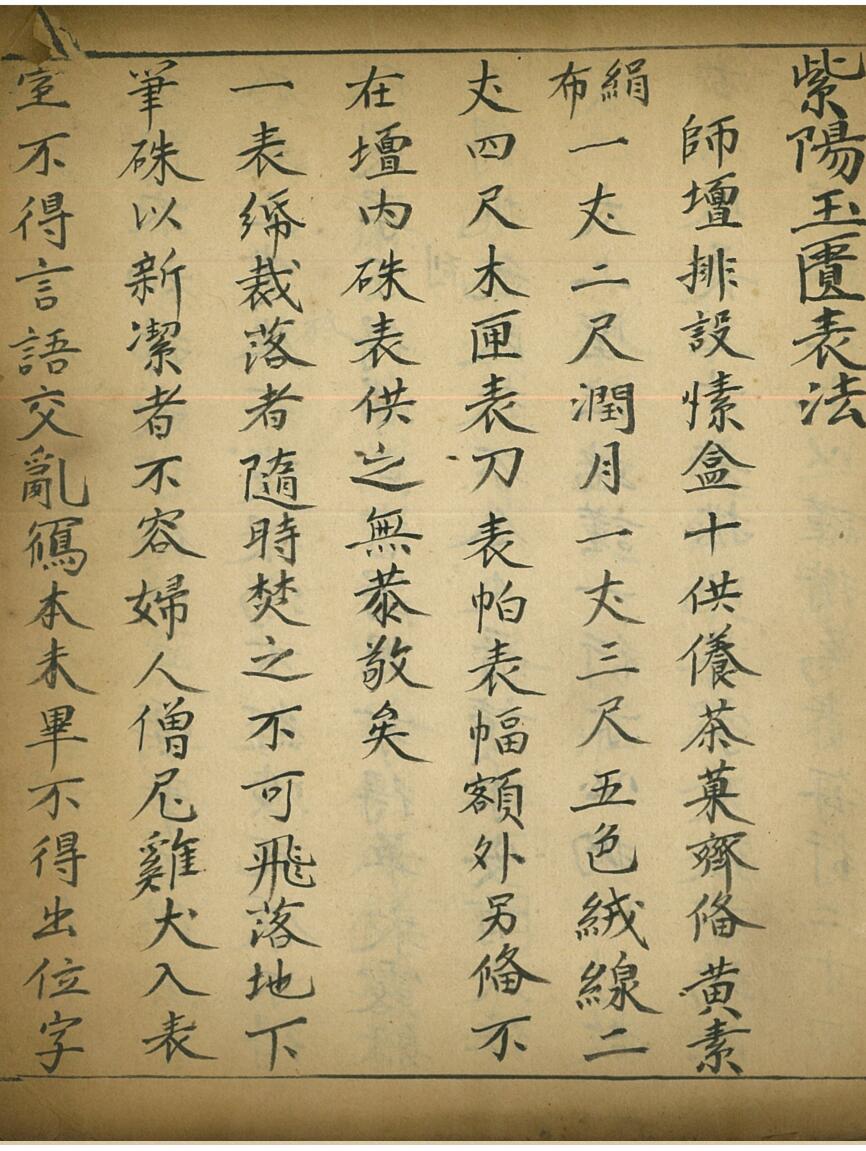 紫陽玉匱表法
師壇排設愫盒十供養茶菓齊俻黃素
絹布一丈二尺潤月一丈三尺五色絨線二
丈四尺木匣表刀表帕表幅額外另俻不
在壇內硃表供之無恭敬矣
一表締裁落者隨時焚之不可飛落地下
筆硃以新潔者不容婦人僧尼雞犬入表
室不得言語交亂寫本未畢不得出位字